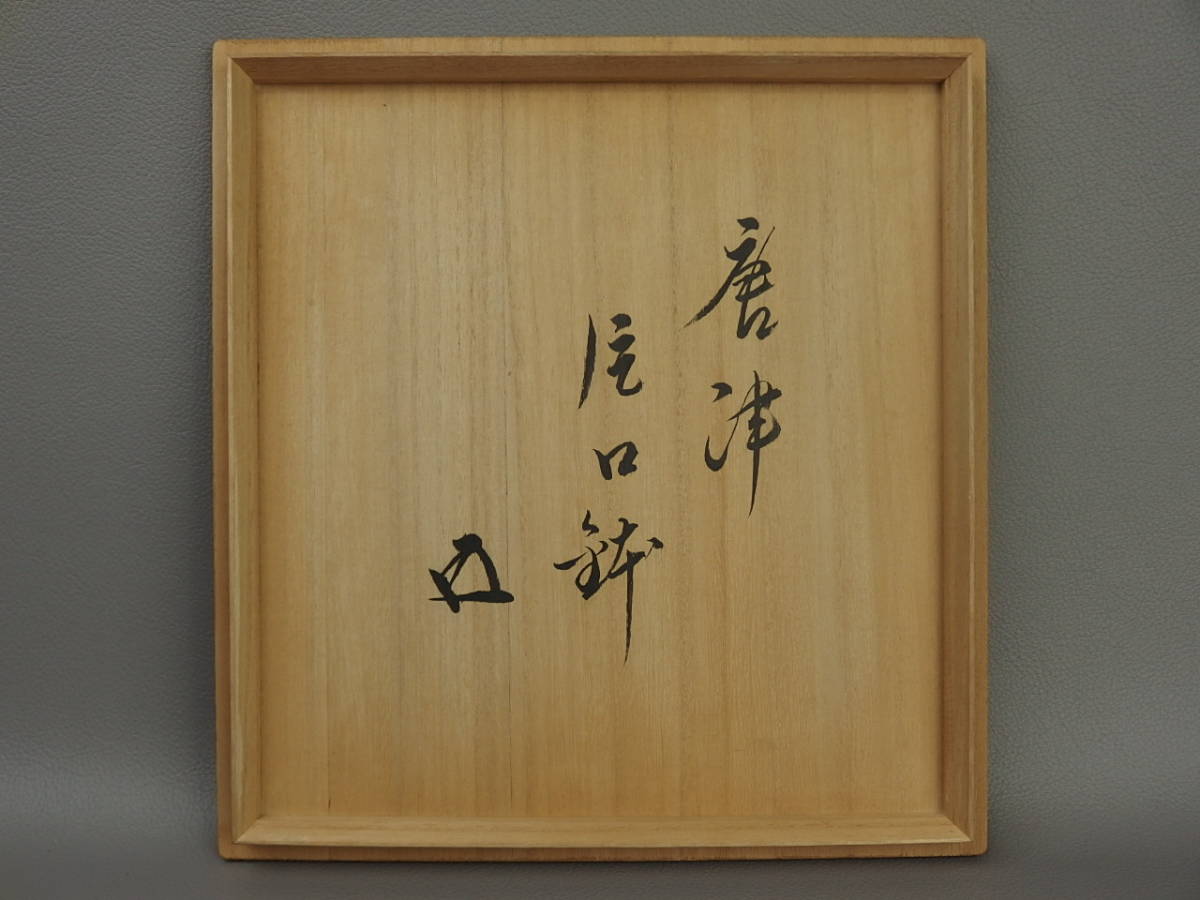 唐津
片口鉢